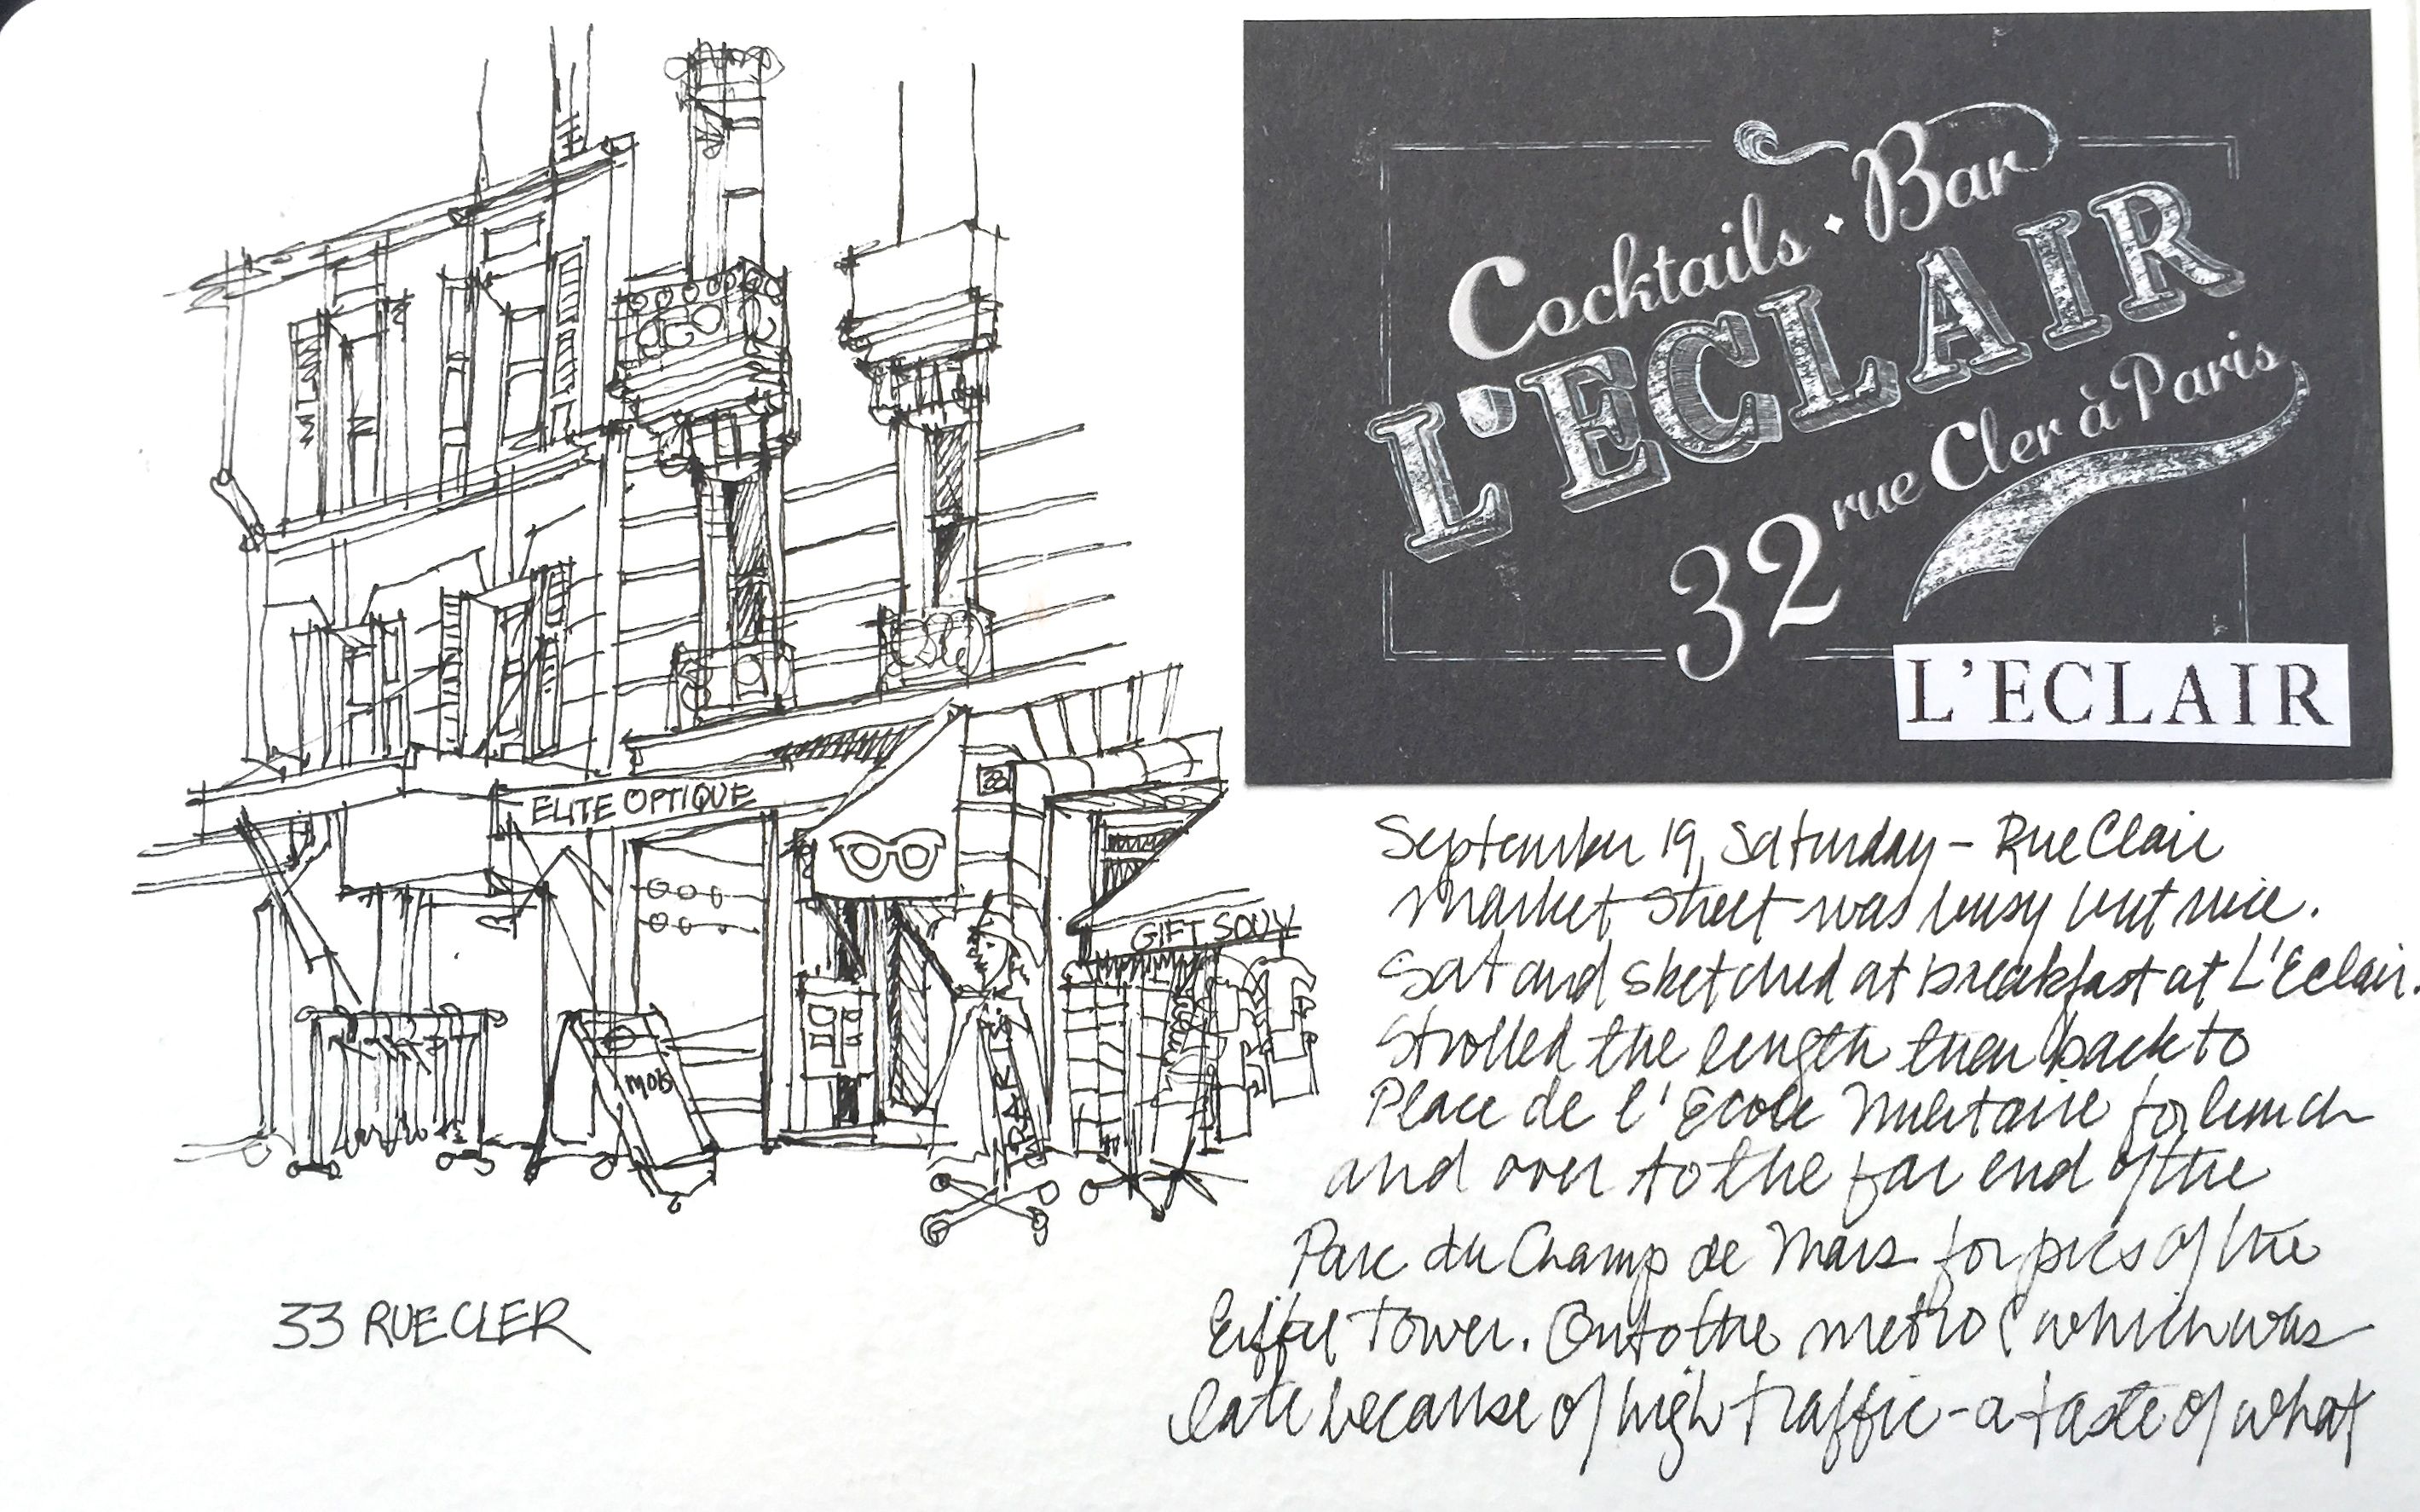 ELITE OPTIQUE
33
GIFT SOUV
MOIS
PARIS
33 RUE CLER
Cocktails · Bar
L'ECLAIR
32 rue Cler à Paris
L'ECLAIR
September 19, Saturday – Rue Clair
market street was busy but nice.
Sat and sketched at breakfast at L'Eclair.
Strolled the length then back to
Place de l'Ecole Militaire for lunch
and over to the far end of the
Parc du Champ de Mars for pics of the
Eiffel Tower. Onto the metro (which was
late because of high traffic – a taste of what